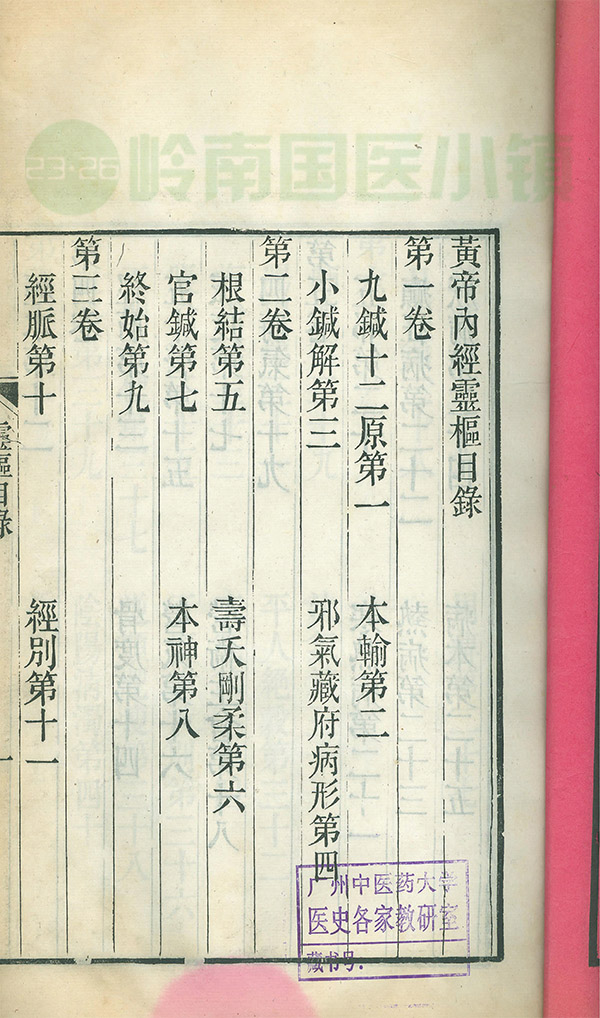 23·26 岭南国医小镇
黃帝內經靈樞目錄
第一卷
九鍼十二原第一 本輸第二
小鍼解第三 邪氣藏府病形第四
第二卷
根結第五 壽夭剛柔第六
官鍼第七 本神第八
終始第九
第三卷
經脈第十 經別第十一
靈樞目錄 一
广州中医药大学
医史各家教研室
藏书号: